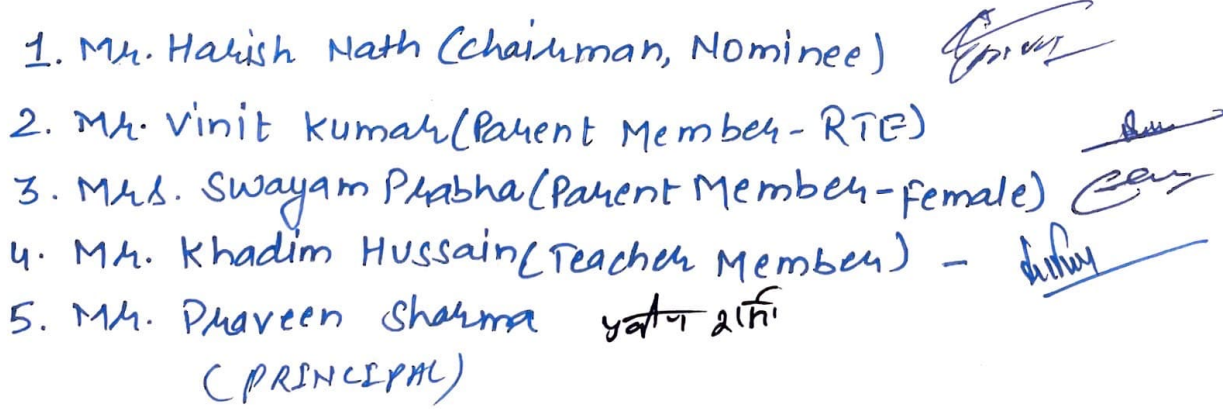 1. Mr. Harish Nath (Chairman, Nominee)
2. Mr. Vinit Kumar (Parent Member - RTE)
3. Mrs. Swayam Prabha (Parent Member - Female)
4. Mr. Khadim Hussain (Teacher Member) -
5. Mr. Praveen Sharma प्रवीण शर्मा
(PRINCIPAL)